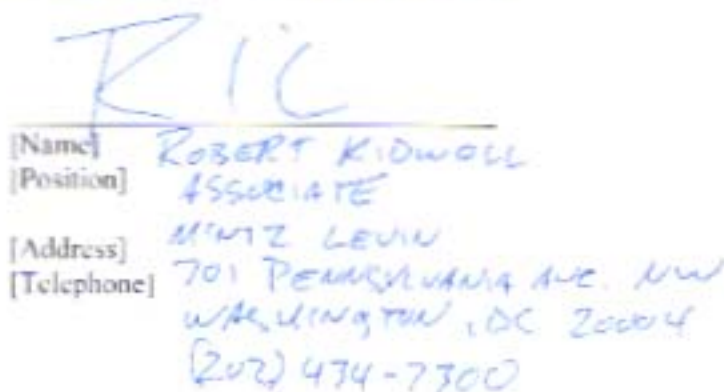 RIC
[Name] ROBERT KIDWELL
[Position] ASSOCIATE
[Address] MINTZ LEVIN
[Telephone] 701 PENNSYLVANIA AVE. NW
WASHINGTON, DC 20004
(202) 434-7300